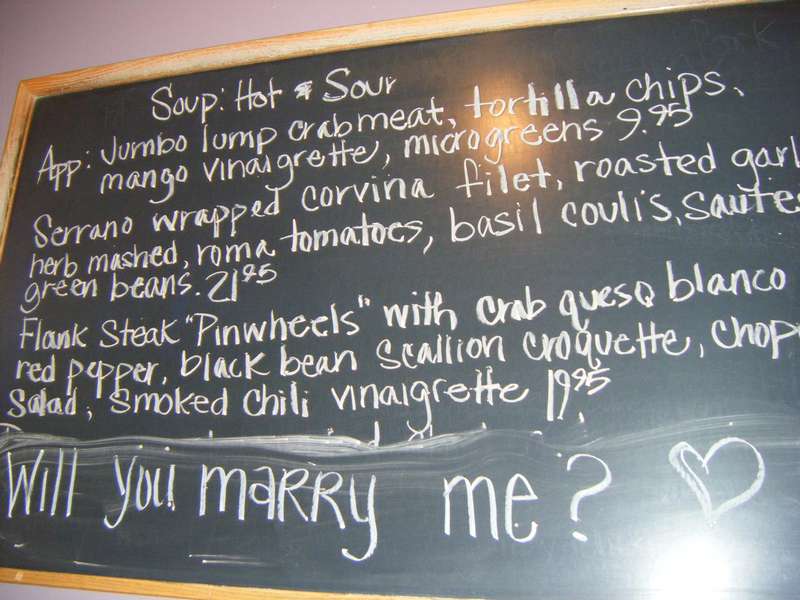 Soup: Hot & Sour
App: Jumbo lump crabmeat, tortilla chips,
mango vinaigrette, microgreens 9.95
Serrano wrapped corvina filet, roasted garl
herb mashed, roma tomatoes, basil coulis, sautee
green beans. 21 95
Flank Steak "Pinwheels" with crab queso blanco
red pepper, black bean scallion croquette, chop
Salad, smoked chili vinaigrette 19.95
Will you marry me? ♡